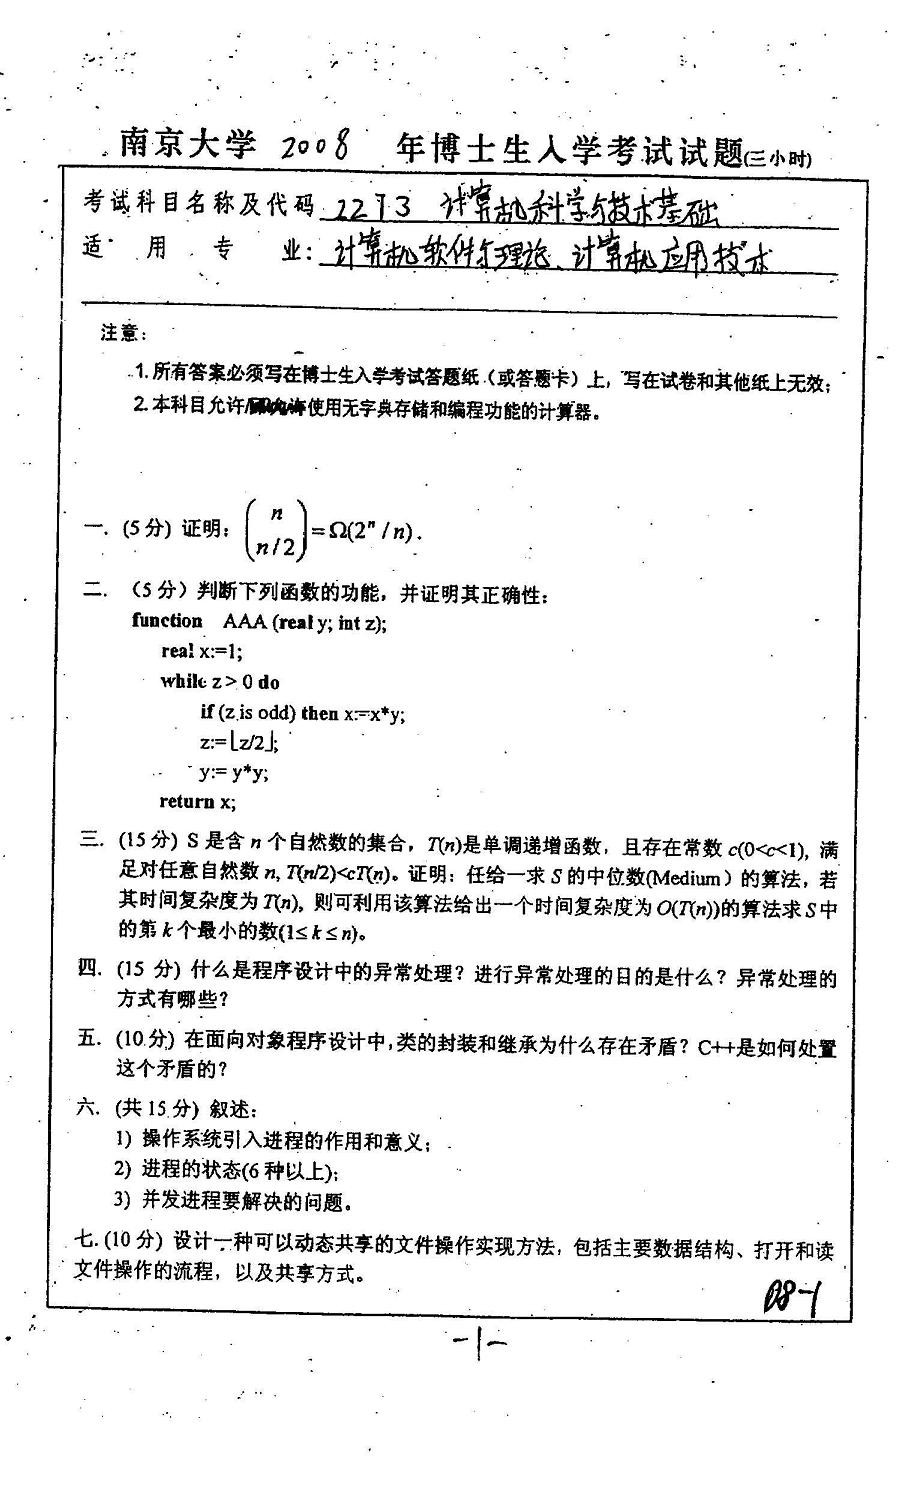 南京大学 2008 年博士生入学考试试题(三小时)
考试科目名称及代码 2273 计算机科学与技术基础
适用专业：计算机软件与理论、计算机应用技术
注意：
1.所有答案必须写在博士生入学考试答题纸（或答题卡）上，写在试卷和其他纸上无效；
2.本科目允许/使用无字典存储和编程功能的计算器。
一. (5分) 证明：(n n/2)=Ω(2ⁿ / n).
二. （5分）判断下列函数的功能，并证明其正确性：
function AAA (real y; int z);
real x:=1;
while z > 0 do
if (z is odd) then x:=x*y;
z:=⌊z/2⌋;
y:= y*y;
return x;
三. (15分) S 是含 n 个自然数的集合，T(n)是单调递增函数，且存在常数 c(0<c<1), 满
足对任意自然数 n, T(n/2)<cT(n)。证明：任给一求 S 的中位数(Medium）的算法，若
其时间复杂度为 T(n), 则可利用该算法给出一个时间复杂度为 O(T(n))的算法求 S 中
的第 k 个最小的数(1≤ k ≤ n)。
四. (15 分) 什么是程序设计中的异常处理？进行异常处理的目的是什么？异常处理的
方式有哪些？
五. (10分) 在面向对象程序设计中,类的封装和继承为什么存在矛盾？C++是如何处置
这个矛盾的？
六. (共 15分) 叙述：
1) 操作系统引入进程的作用和意义；
2) 进程的状态(6 种以上);
3) 并发进程要解决的问题。
七. (10 分) 设计一种可以动态共享的文件操作实现方法，包括主要数据结构、打开和读
文件操作的流程，以及共享方式。
08-1
-1-